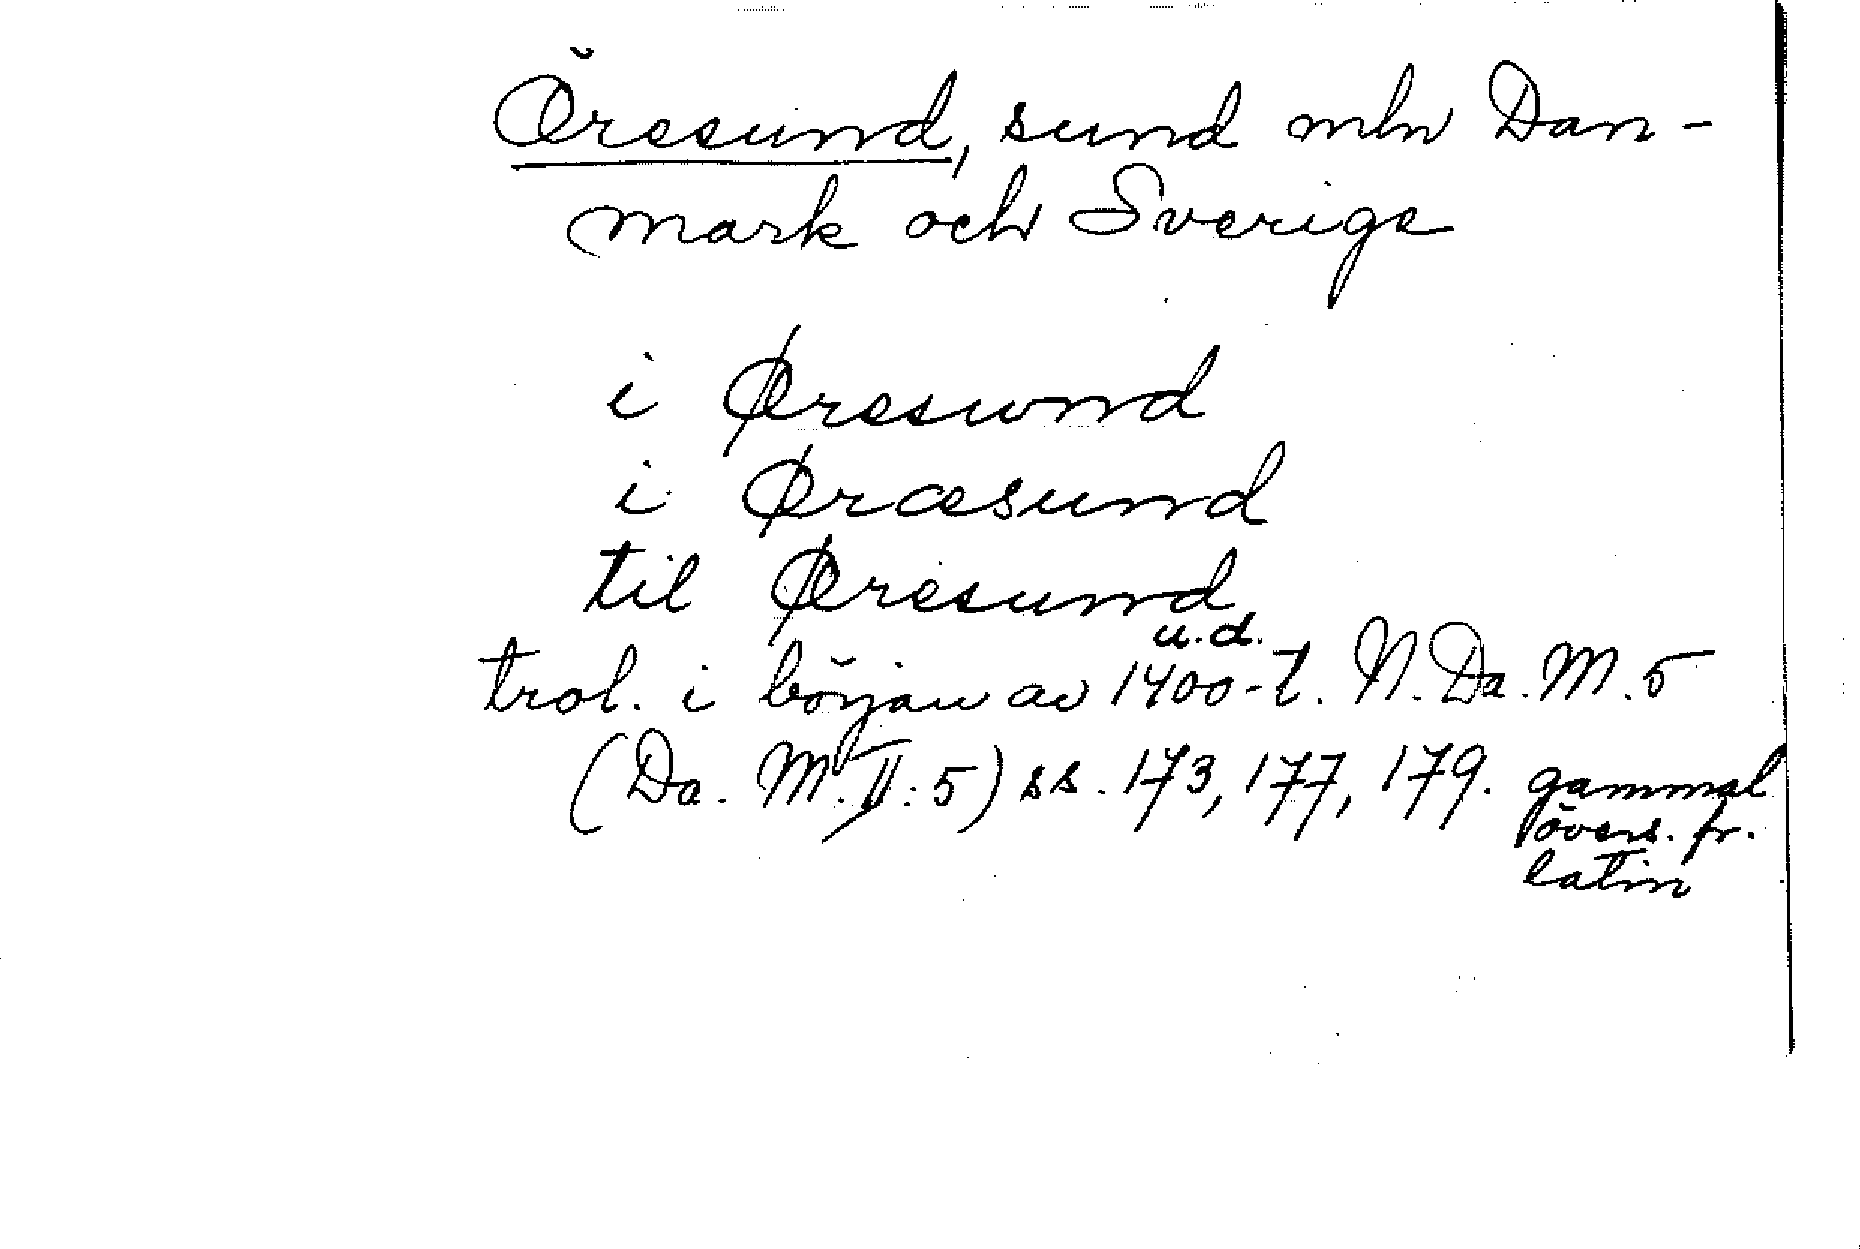 Öresund, sund mln Dan-
mark och Sverige
i Øreswnd
i Øræsund
til Øresund
u.d.
trol. i början av 1400-t. N. Da. M. 5
(Da. M. II: 5) ss. 173, 177, 179. gammal
övers. fr.
latin